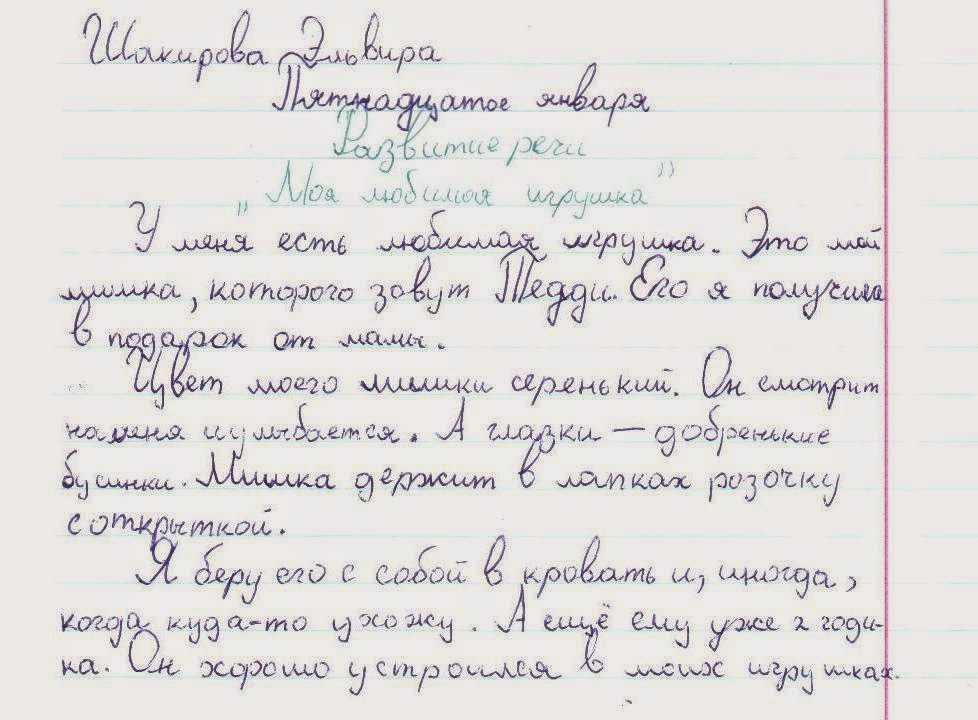 Шакирова Эльвира
Пятнадцатое января
Развитие речи
"Моя любимая игрушка"
У меня есть любимая игрушка. Это мой
мишка, которого зовут Тедди. Его я получила
в подарок от мамы.
Цвет моего мишки серенький. Он смотрит
на меня и улыбается. А глазки – добренькие
бусинки. Мишка держит в лапках розочку
с открыткой.
Я беру его с собой в кровать и, иногда,
когда куда-то ухожу. А ещё ему уже 2 годи-
ка. Он хорошо устроился в моих игрушках.